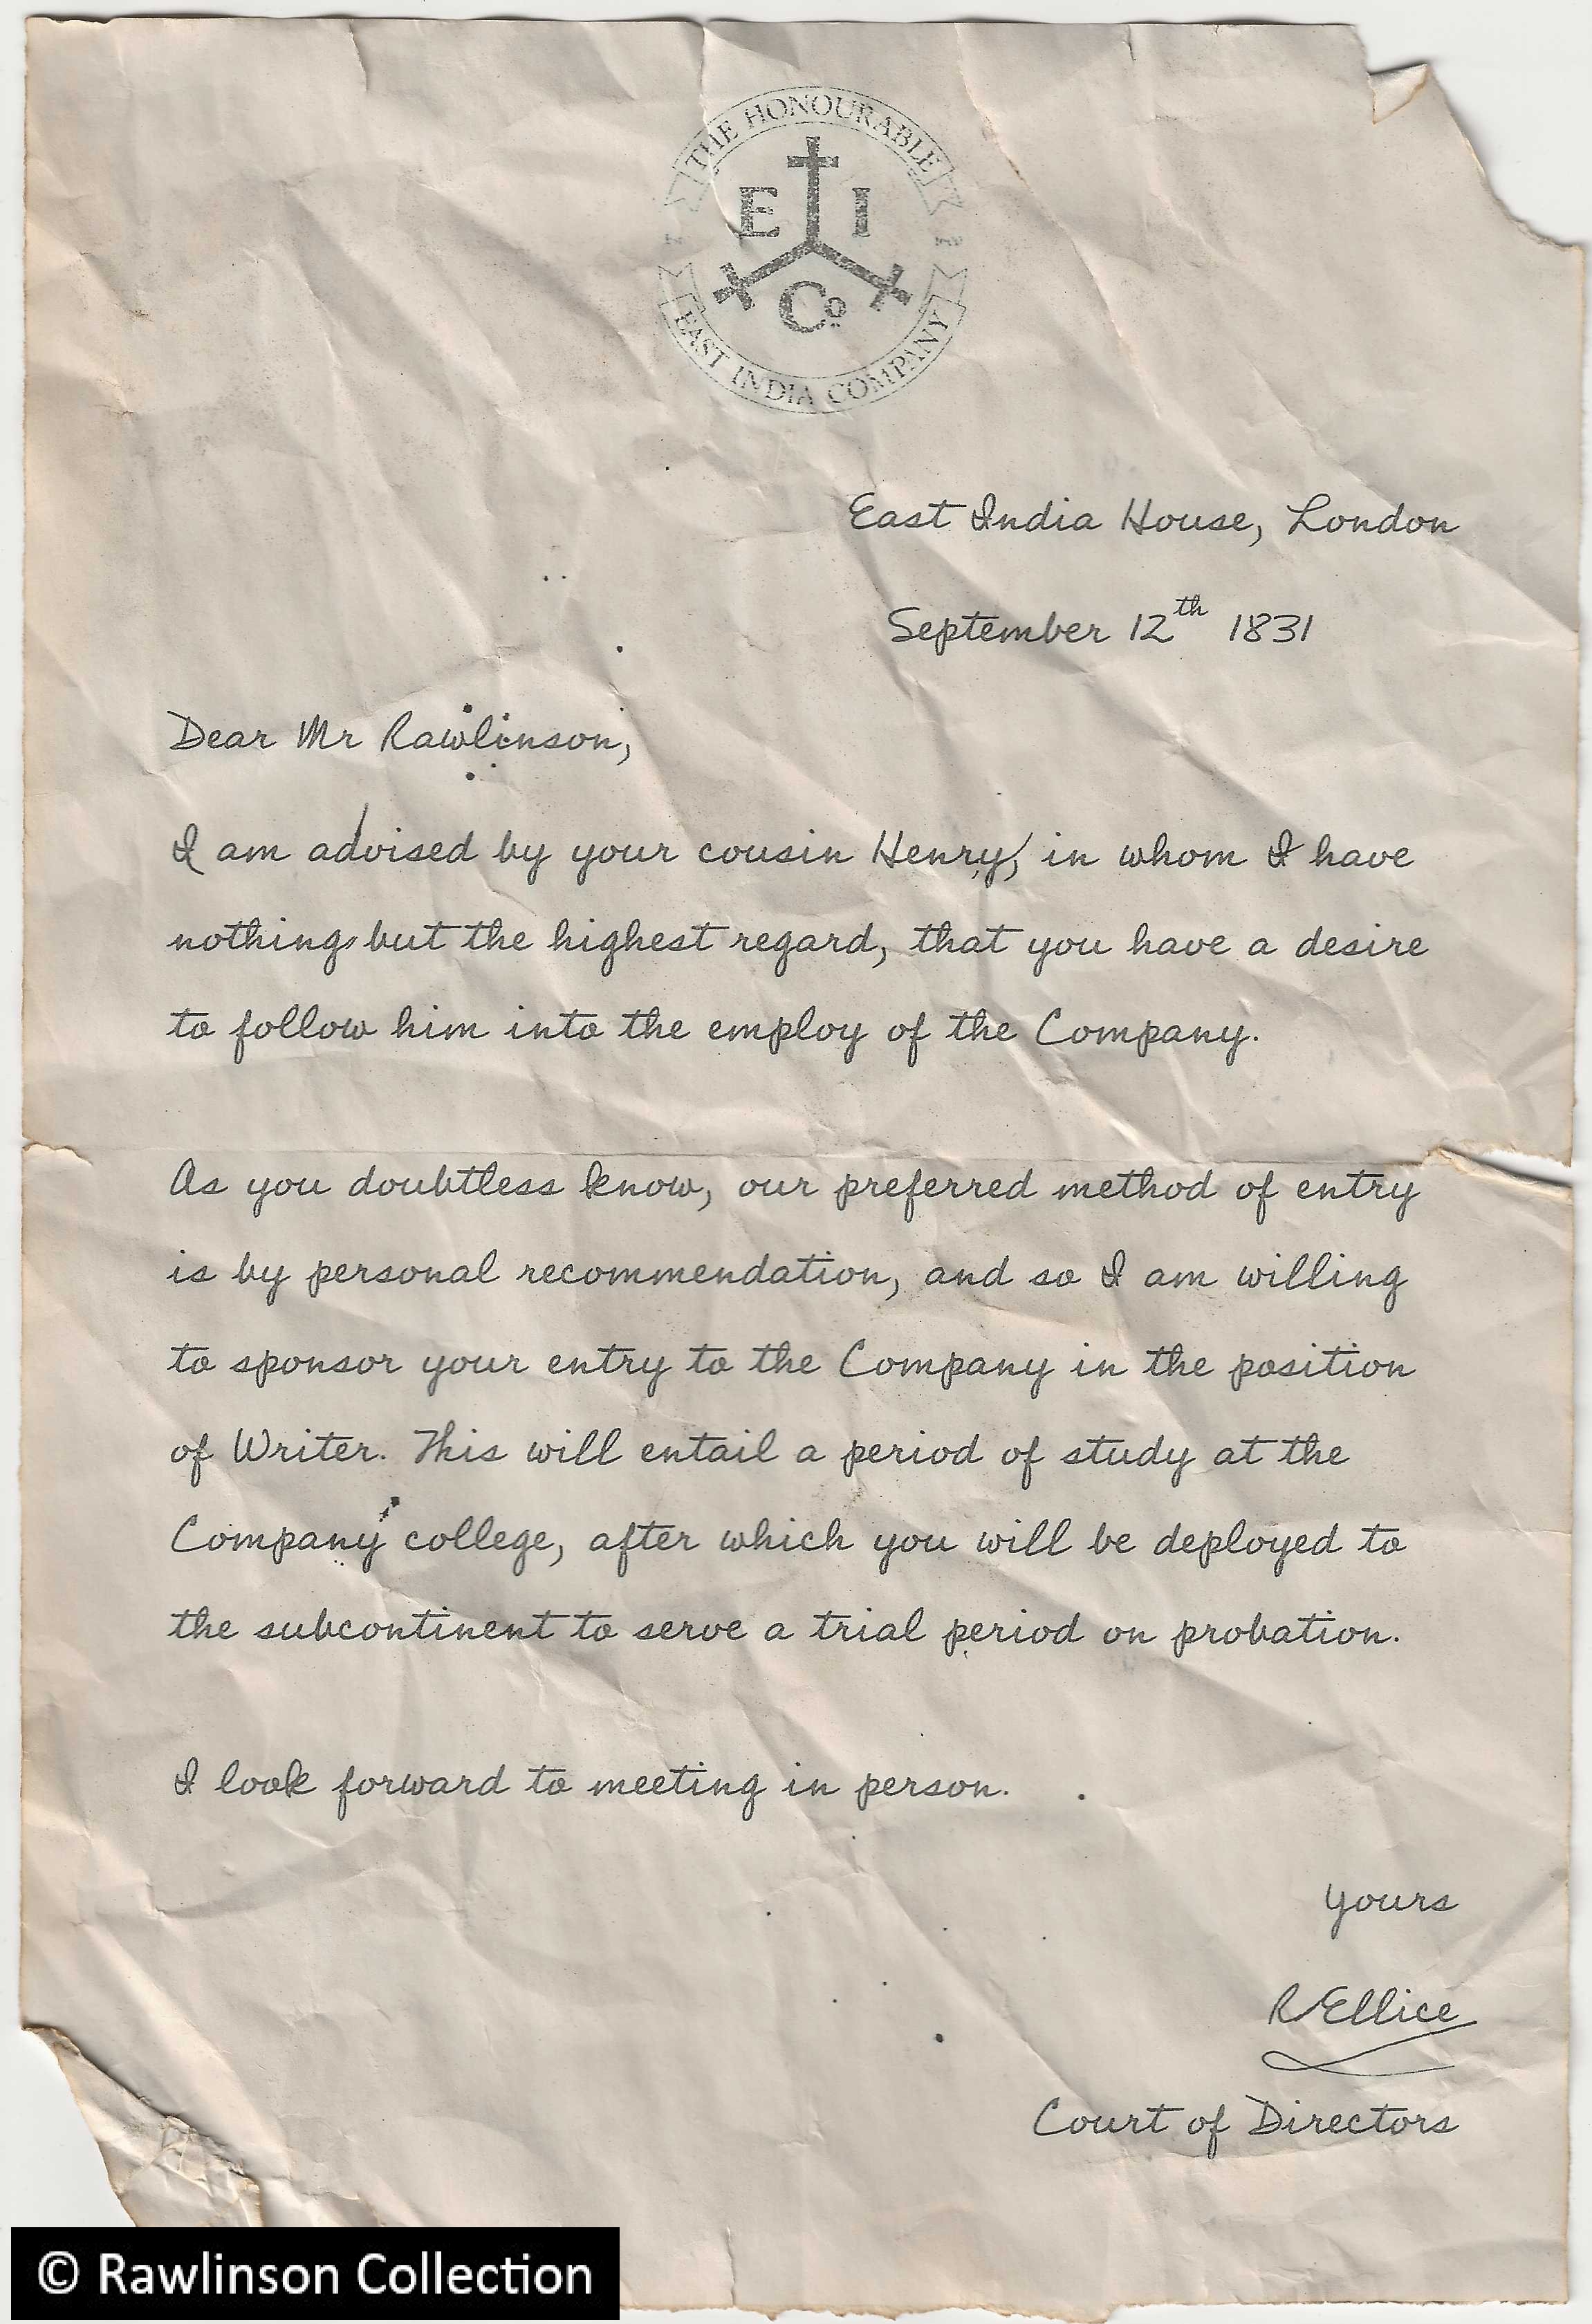 THE HONOURABLE
E I
Co
EAST INDIA COMPANY
East India House, London
September 12th 1831
Dear Mr Rawlinson,
I am advised by your cousin Henry, in whom I have
nothing but the highest regard, that you have a desire
to follow him into the employ of the Company.
As you doubtless know, our preferred method of entry
is by personal recommendation, and so I am willing
to sponsor your entry to the Company in the position
of Writer. This will entail a period of study at the
Company college, after which you will be deployed to
the subcontinent to serve a trial period on probation.
I look forward to meeting in person.
Yours
R Ellice
Court of Directors
© Rawlinson Collection